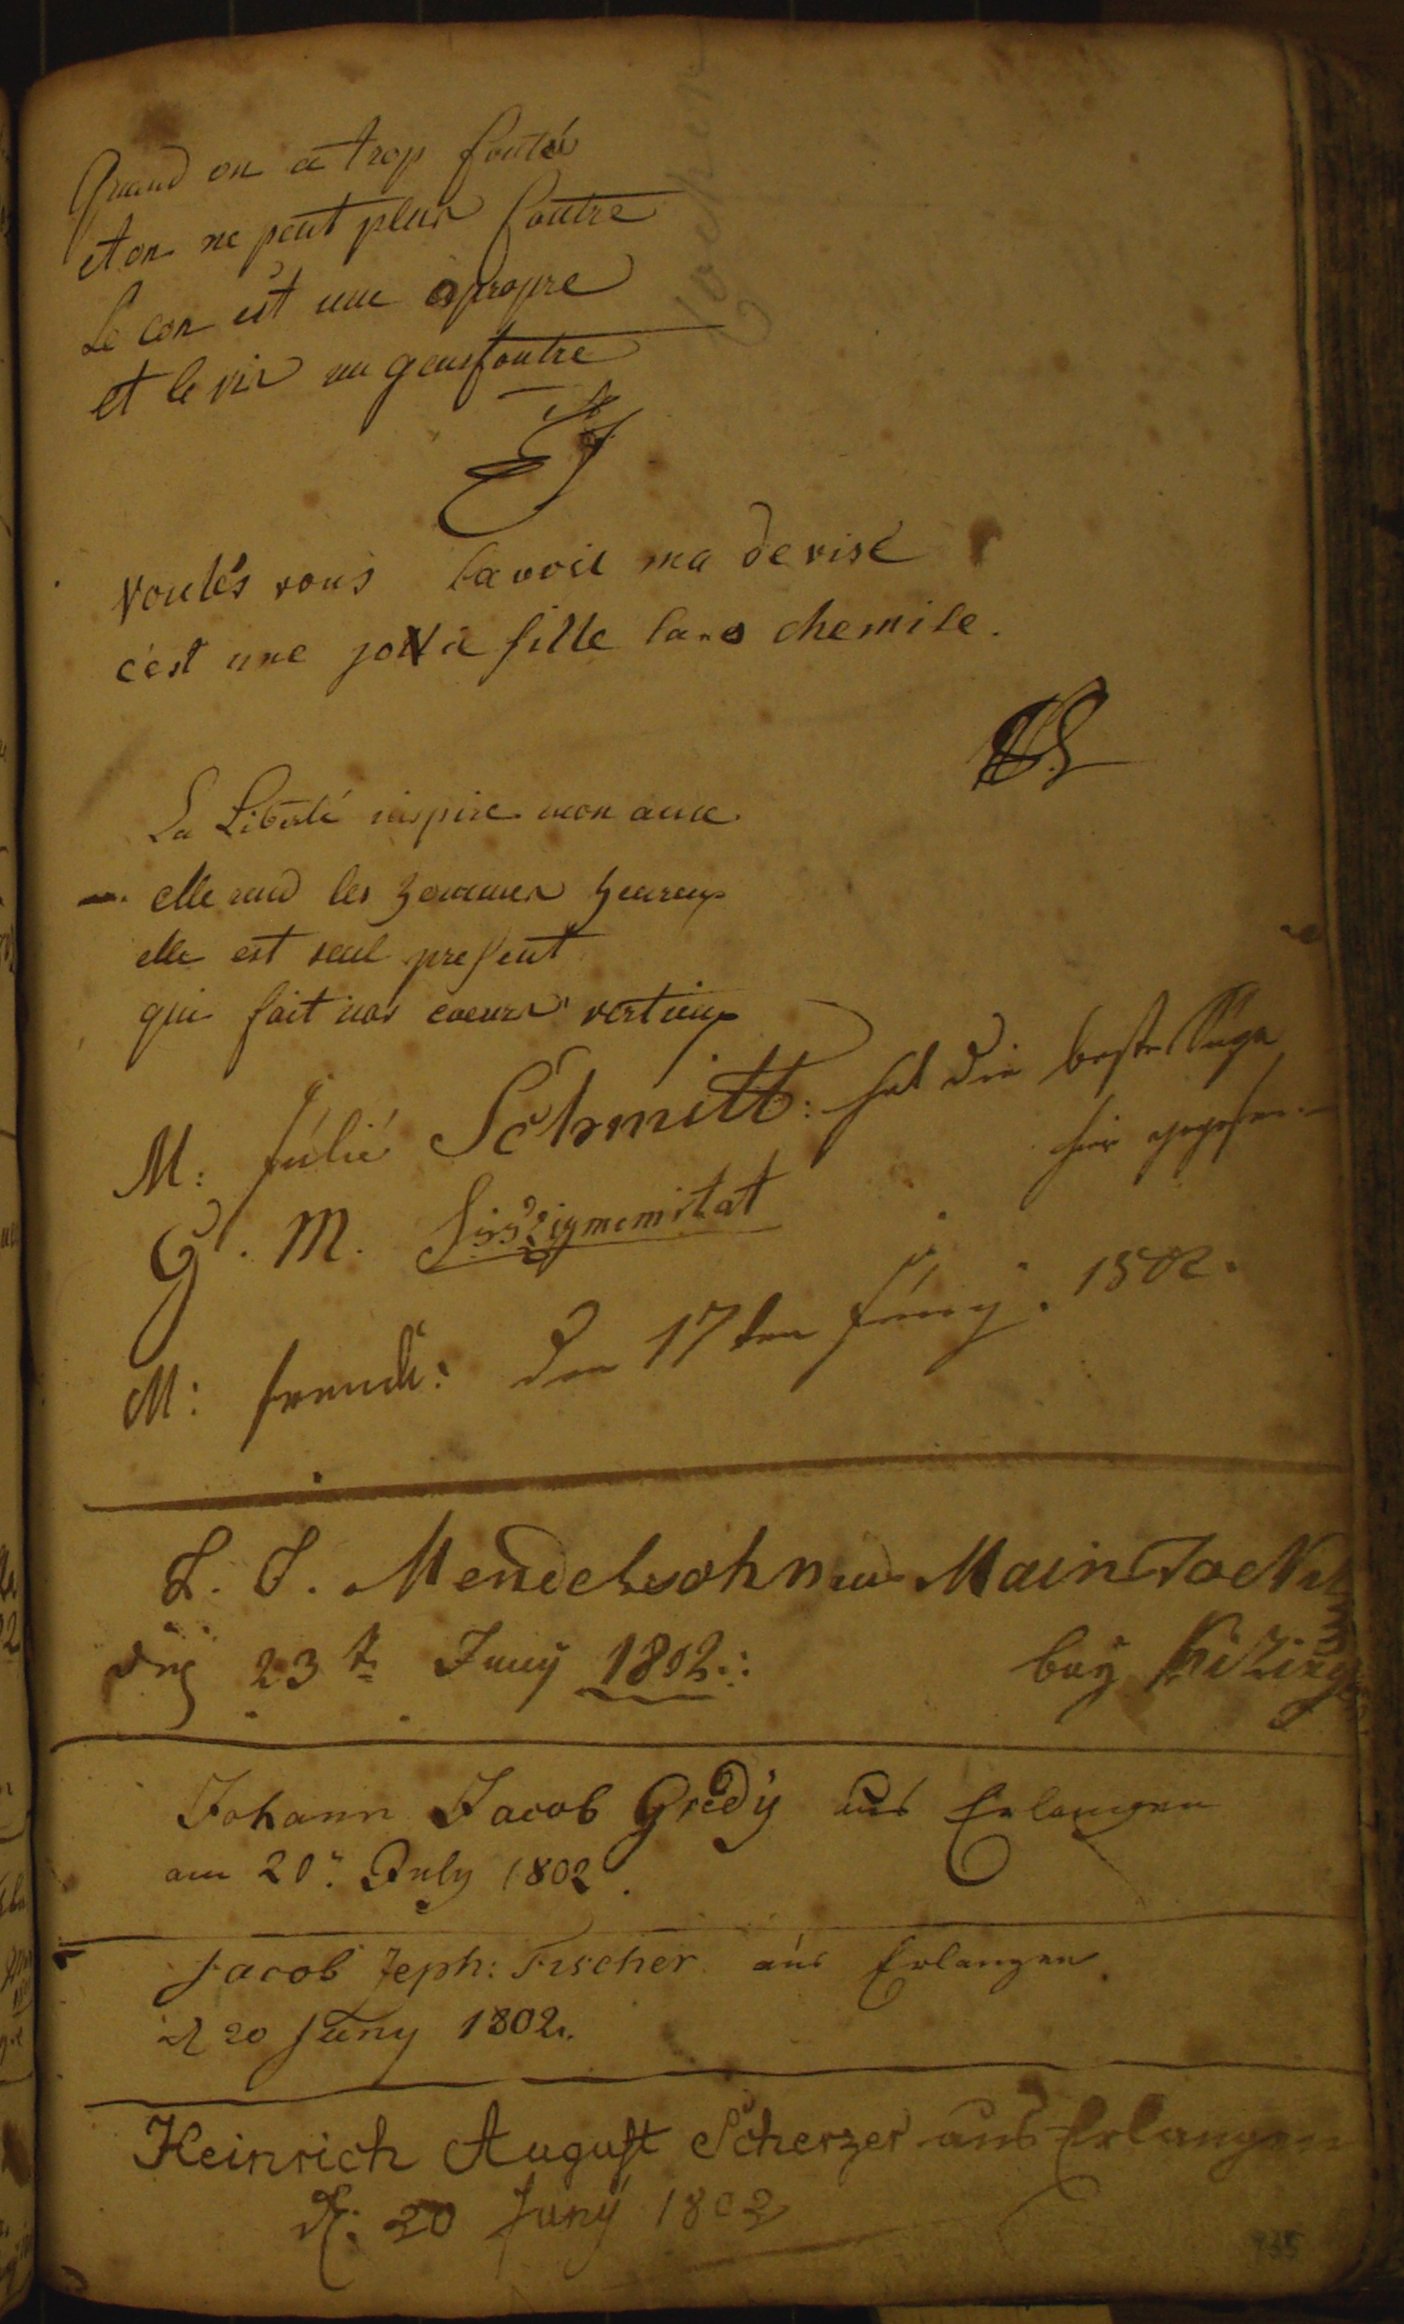 Quand on a trop foutu
et on ne peut plus foutre
Le con est une apropre
et le vit un jeansfoutre
Voulés vous savoir ma devise
c'est une jolie fille sans chemise.
La Liberté inspire mon ame
elle rend les hommes heureux
elle est seul present
qui fait nos coeurs vertueux
M: Julié Schmitt: hat die beste
hier
G. M.
M: den 17ten Juny. 1802.
L. J. Mendelsohn aus Mainstockh
bey Kitzing
den 23t Juny 1802.:
Johann Jacob Gredy aus Erlangen
am 20. July 1802.
Jacob Jeph: Fischer aus Erlangen
d 20 Juny 1802.
Heinrich August Scherzer aus Erlangen
d. 20 Juny 1802